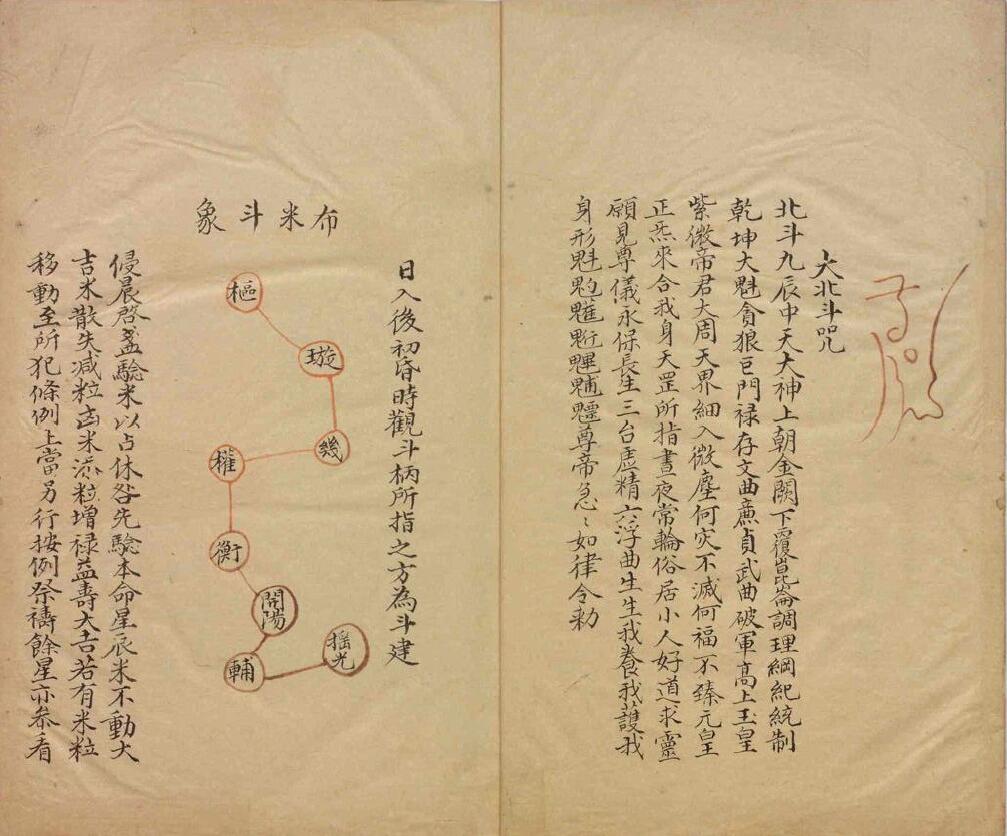 大北斗咒
北斗九辰中天大神上朝金闕下覆崑崙調理綱紀統制
乾坤大魁貪狼巨門禄存文曲廉貞武曲破軍高上玉皇
紫微帝君大周天界細入微塵何灾不滅何福不臻元皇
正炁來合我身天罡所指晝夜常輪俗居小人好道求靈
願見尊儀永保長生三台虛精六浮曲生生我養我護我
身形魁尊帝急〻如律令勅
布米斗象
日入後初昏時觀斗柄所指之方為斗建
樞
璇
幾
權
衡
開陽
輔
搖光
侵晨啓盞驗米以占休咎先驗本命星辰米不動大
吉米散失减粒凶米添粒增禄益壽大吉若有米粒
移動至所犯條例上當另行按例祭禱餘星亦叅看